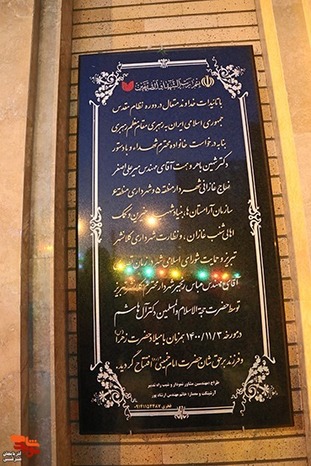 بسم رب الشهداء و الصدیقین
با تائیدات خداوند متعال در دوره نظام مقدس
جمهوری اسلامی ایران به رهبری مقام معظم رهبری
بنا به درخواست خانواده محترم شهداء و با دستور
دکتر شهین باهر و همت آقای مهندس میرعلی اصغر
شهردار منطقه ۵ و شهرداری منطقه ۶
سازمان آرامستان‌ها، بنیاد شهید، خیرین و کمک
اهالی شنب غازان، و نظارت شهرداری کلانشهر
تبریز و حمایت شورای اسلامی شهر
آقای مهندس عباس رنجبر شهردار محترم تبریز
توسط حضرت حجه الاسلام والمسلمین دکتر آل هاشم
در مورخه ۱۴۰۰/۱۱/۳ همزمان با میلاد حضرت زهرا (س)
و فرزند برحق شان حضرت امام خمینی (ره) افتتاح گردید.